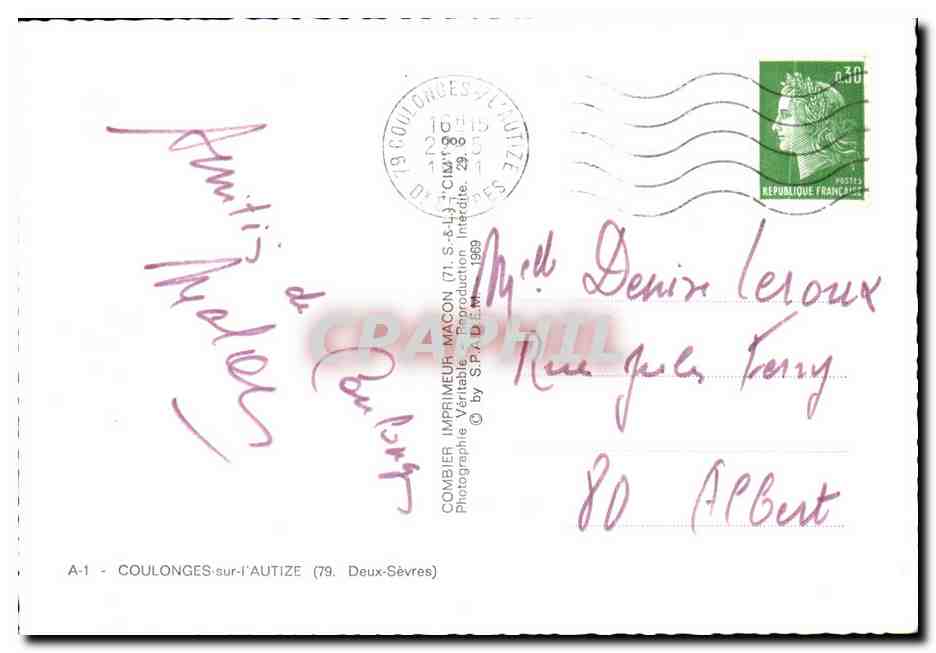 Amitiés
de
Coulonges
79 COULONGES-S/-L'AUTIZE
16H15
DX SEVRES
0,30
POSTES
REPUBLIQUE FRANÇAISE
COMBIER IMPRIMEUR MACON (71. S.-&-L.) "CIM"
Photographie Véritable - Reproduction Interdite.
© by S.P.A.D.E.M. 1969
CPAPHIL
Melle Denise Leroux
Rue Jules Ferry
80 Albert
A-1 - COULONGES-sur-l'AUTIZE (79. Deux-Sèvres)